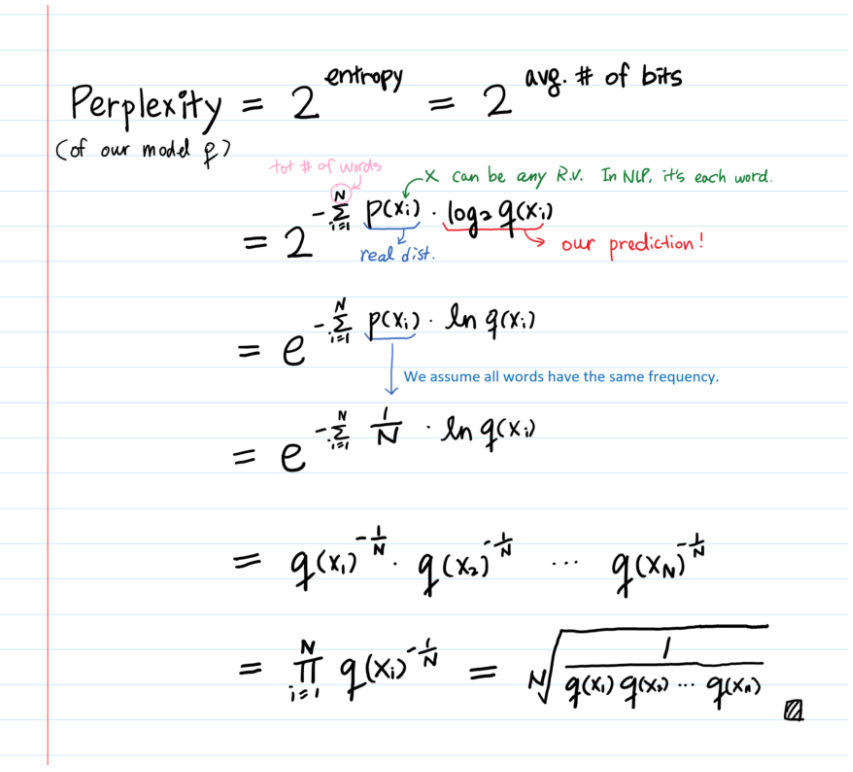 Perplexity = 2^entropy = 2^avg. # of bits
(of our model q)
tot # of words
X can be any R.V. In NLP, it's each word.
= 2^-∑_{i=1}^{N} p(x_i) · log_2 q(x_i)
real dist.
our prediction!
= e^-∑_{i=1}^{N} p(x_i) · ln q(x_i)
We assume all words have the same frequency.
= e^-∑_{i=1}^{N} 1/N · ln q(x_i)
= q(x_1)^{-1/N} · q(x_2)^{-1/N} ... q(x_N)^{-1/N}
= ∏_{i=1}^{N} q(x_i)^{-1/N} = ᴺ√(1/(q(x_1) q(x_2) ... q(x_n)))